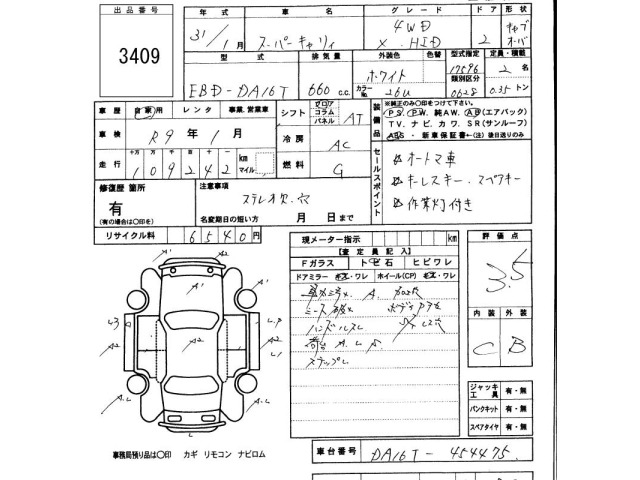 出品番号
3409
年式 車名 グレード ドア 形状
31/1月 スーパーキャリイ 4WD X.HID 2 キャブオーバ
型式 排気量 外装色 色替 型式指定 定員・積載
EBD-DA16T 660c.c. ホワイト カラーNo. 26U 17596 2名
類別区分 0628 0.35トン
車歴 自家用 レンタ 事業.営業車
シフト フロア コラム パネル AT
車検 R9年1月
冷房 AC
走行 十万 万 千 百 十 一
109242 km マイル
燃料 G
装備品
※純正のみ〇印をつけて下さい。
PS、PW、純AW、AB(エアバック)
TV、ナビ、カワ、SR(サンルーフ)
ABS・新車保証書←(注)後日送りのみ
セールスポイント
オートマ車
キーレスキー、スペアキー
作業灯付き
修復歴 箇所
有
(有の場合は〇印を)
注意事項
ステレオ欠.穴
名変期日の短い方 月 日まで
リサイクル料 6540円
現メーター指示 km
【査定員記入】
Fガラス トビ石 ヒビワレ
ドアミラー キズ・ワレ ホイール(CP) キズ・ワレ
ハンドルスレ
評価点
3.5
内装 外装
C B
A1 A1
A2 A2 A2 A2
L3 LP L1
A.L A.L A2
ジャッキ工具 有・無
パンクキット 有・無
スペアタイヤ 有・無
事務局預り品は〇印 カギ リモコン ナビロム
車台番号 DA16T-454475